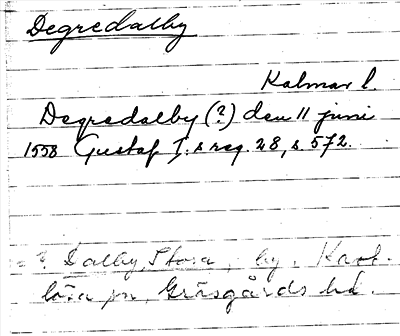 Degredalby
Kalmar l.
Degredalby (?) den 11 juni
1558 Gustaf I:s reg. 28, s 572.
= ? Dalby, Stora, by, Kast-
lösa sn, Gräsgårds hd.